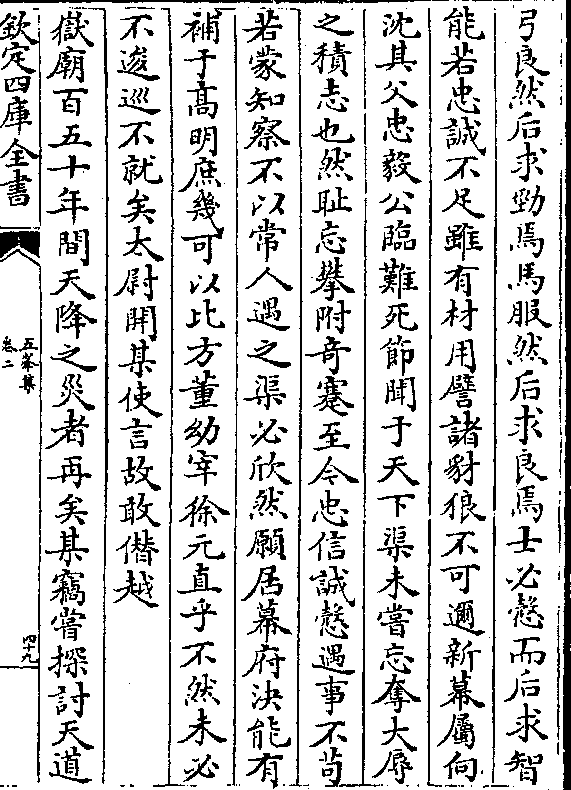 弓良然后求勁焉馬服然后求良焉士必慤而后求智
能若忠誠不足雖有材用譬諸豺狼不可邇新幕屬向
沈其父忠毅公臨難死節聞于天下渠未嘗忘奪大辱
之積志也然耻忘攀附奇蹇至今忠信誠慤遇事不苟
若蒙知察不以常人遇之渠必欣然願居幕府決能有
補于髙明庶幾可以比方董幼宰徐元直乎不然未必
不逡巡不就矣太尉開某使言故敢僭越
嶽廟百五十年間天降之災者再矣某竊嘗探討天道
欽定四庫全書
五峯集
卷二
四十九